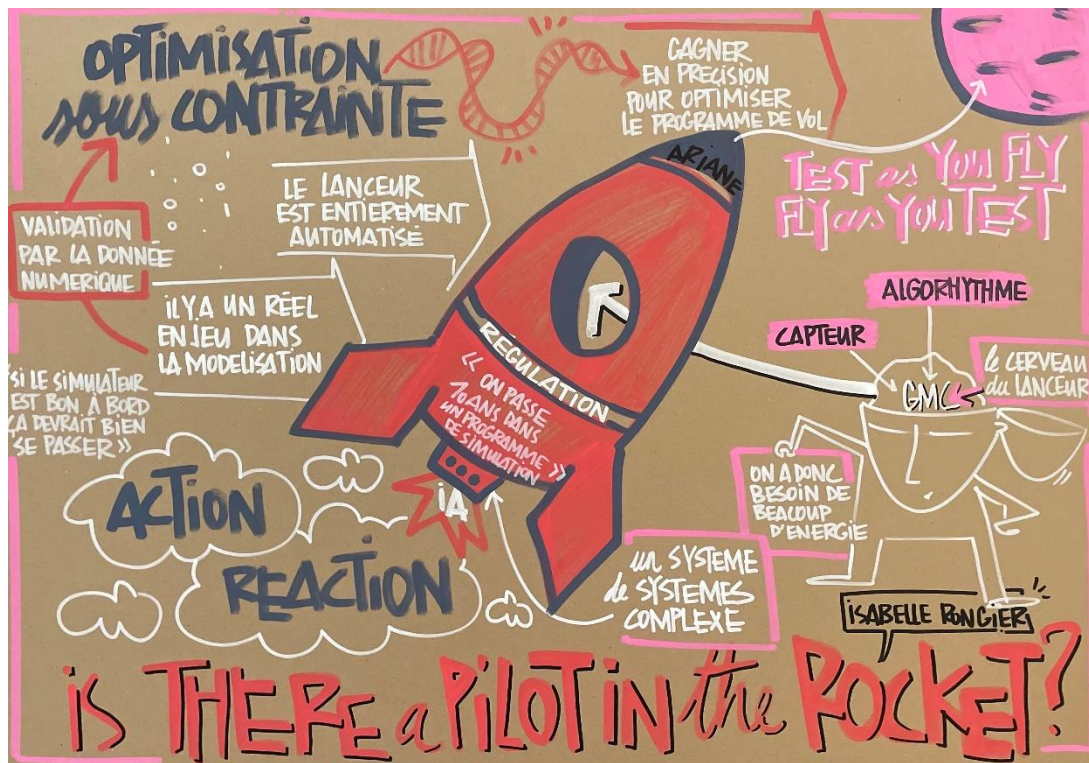 OPTIMISATION
sous CONTRAINTE
GAGNER
EN PRECISION
POUR OPTIMISER
LE PROGRAMME DE VOL
ARIANE
TEST as YOU FLY
FLY as YOU TEST
VALIDATION
PAR LA DONNÉE
NUMERIQUE
LE LANCEUR
EST ENTIEREMENT
AUTOMATISÉ
iL Y.A UN RÉEL
ENJEU DANS
LA MODELISATION
"SI LE SIMULATEUR
EST BON, À BORD
ÇA DEVRAIT BIEN
SE PASSER »
RÉGULATION
« ON PASSE
10 ANS DANS
UN PROGRAMME
DE SIMULATION »
iA
ALGORHYTHME
CAPTEUR
GMC
le CERVEAU
du LANCEUR
ON A DONC
BESOIN DE
BEACOUP
D'ENERGIE
ACTION
REACTION
un SYSTEME
de SYSTEMES
COMPLEXE
iSABELLE RONGIER
iS THERE a PILOT IN the ROCKET?